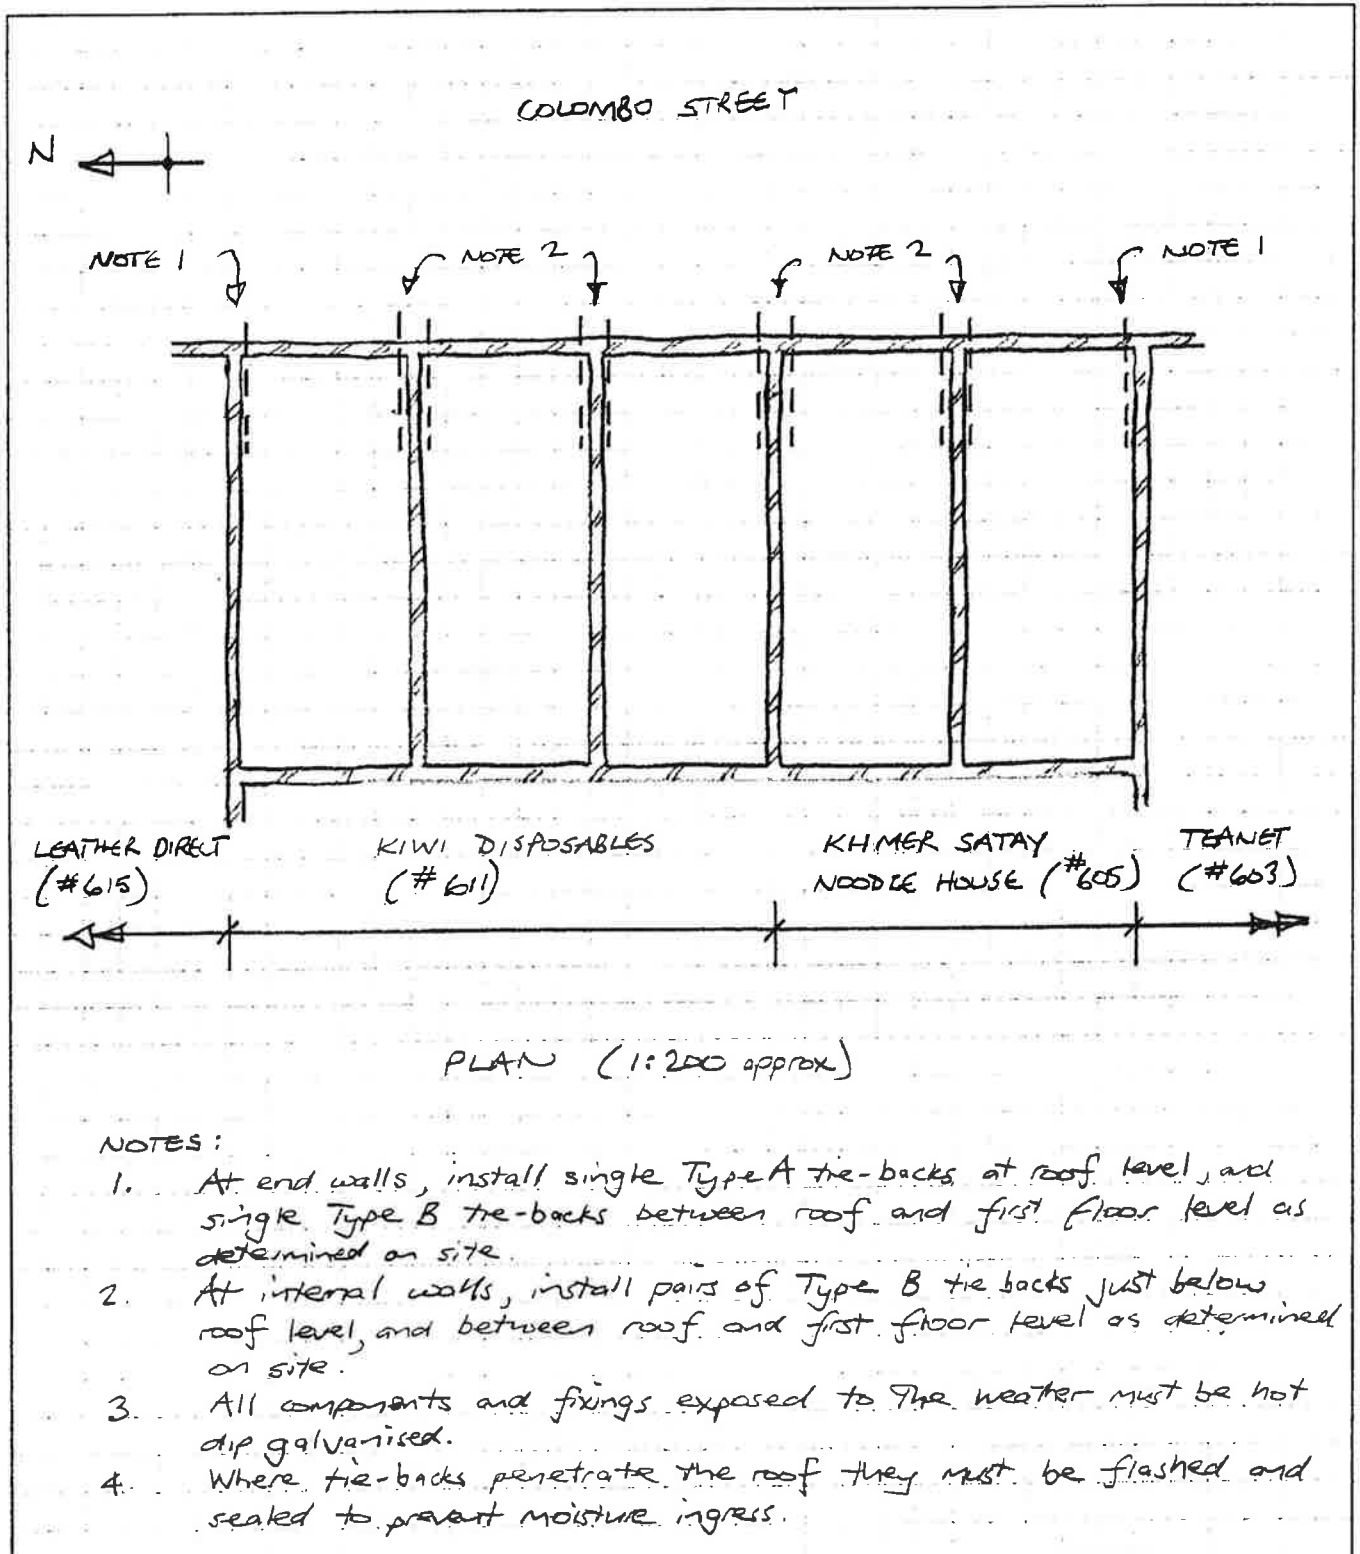 COLOMBO STREET
N
NOTE 1 NOTE 2 NOTE 2 NOTE 1
LEATHER DIRECT
(#615)
KIWI DISPOSABLES
(#611)
KHMER SATAY
NOODLE HOUSE (#605)
TEANET
(#603)
PLAN (1:200 approx)
NOTES:
1. At end walls, install single Type A tie-backs at roof level, and
single Type B tie-backs between roof and first floor level as
determined on site.
2. At internal walls, install pairs of Type B tie backs just below
roof level, and between roof and first floor level as determined
on site.
3. All components and fixings exposed to the weather must be hot
dip galvanised.
4. Where tie-backs penetrate the roof they must be flashed and
sealed to prevent moisture ingress.